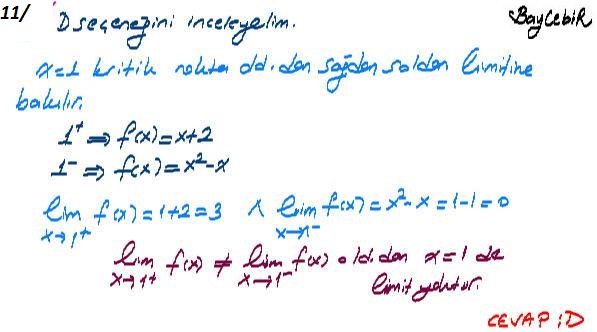 11/ D seçeneğini inceleyelim. BayCebiR
x=1 kritik nokta old.dan sağdan soldan limitine
bakılır.
1⁺ ⇒ f(x)=x+2
1⁻ ⇒ f(x)=x²-x
lim f(x)=1+2=3 ∧ lim f(x)=x²-x=1-1=0
x→1⁺ x→1⁻
lim f(x) ≠ lim f(x) old.dan x=1 de
x→1⁺ x→1⁻ limit yoktur.
CEVAP:D